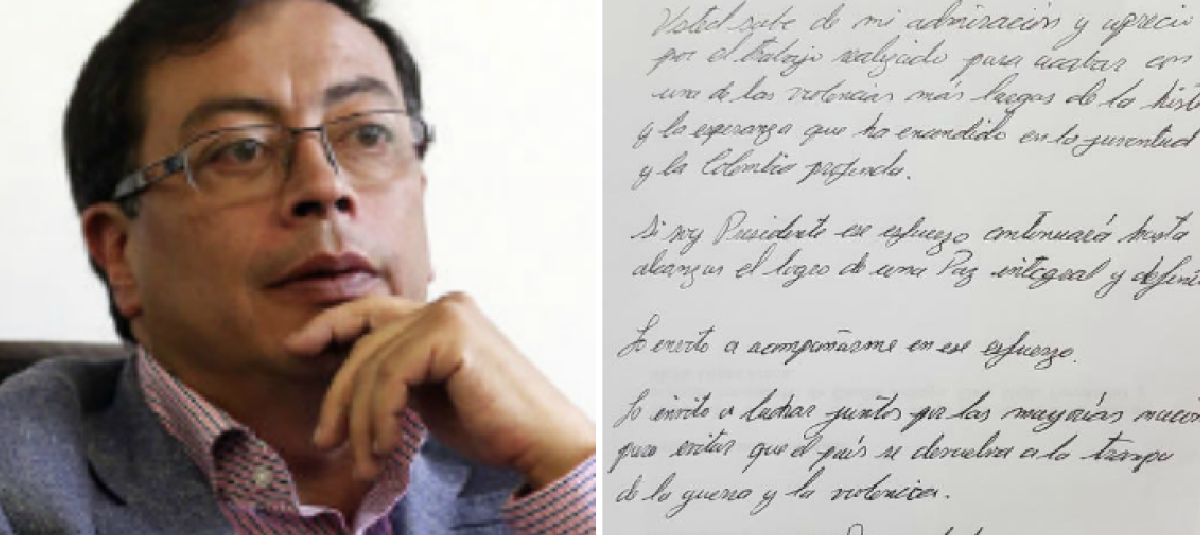 Usted sabe de mi admiración y aprecio
por el trabajo realizado para acabar con
una de las violencias más largas de la hist
y la esperanza que ha encendido en la juventud
y la Colombia profunda.
Si soy Presidente ese esfuerzo continuará hasta
alcanzar el logro de una Paz integral y defini
Lo invito a acompañarme en ese esfuerzo.
Lo invito a luchar juntos por las mayorías
para evitar que el país se devuelva a la trampa
de la guerra y la violencia.